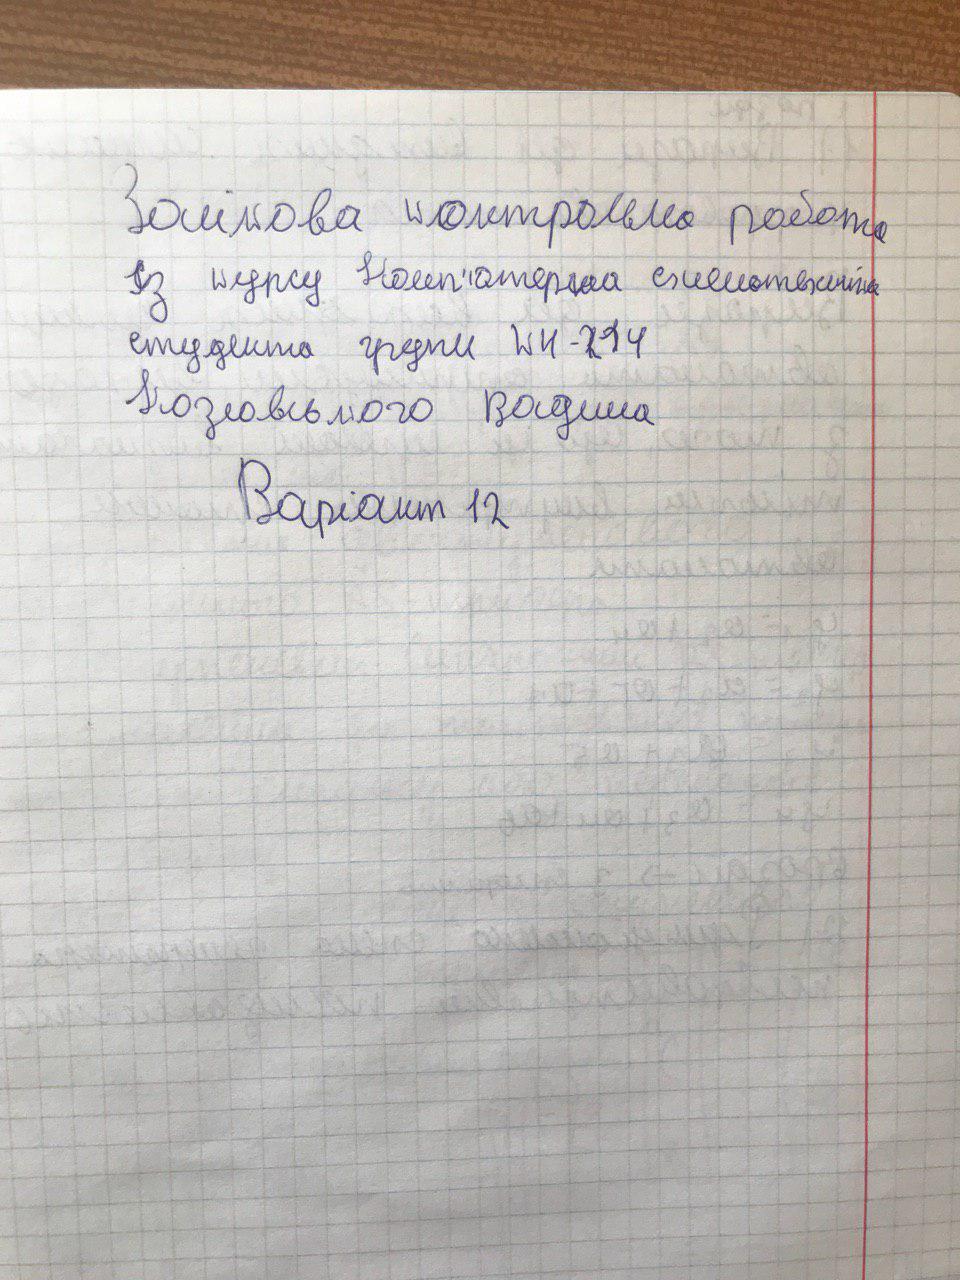 Залікова контрольна робота
із курсу Комп'ютерна схемотехніка
студента групи КН-214
Козловського Вадима
Варіант 12